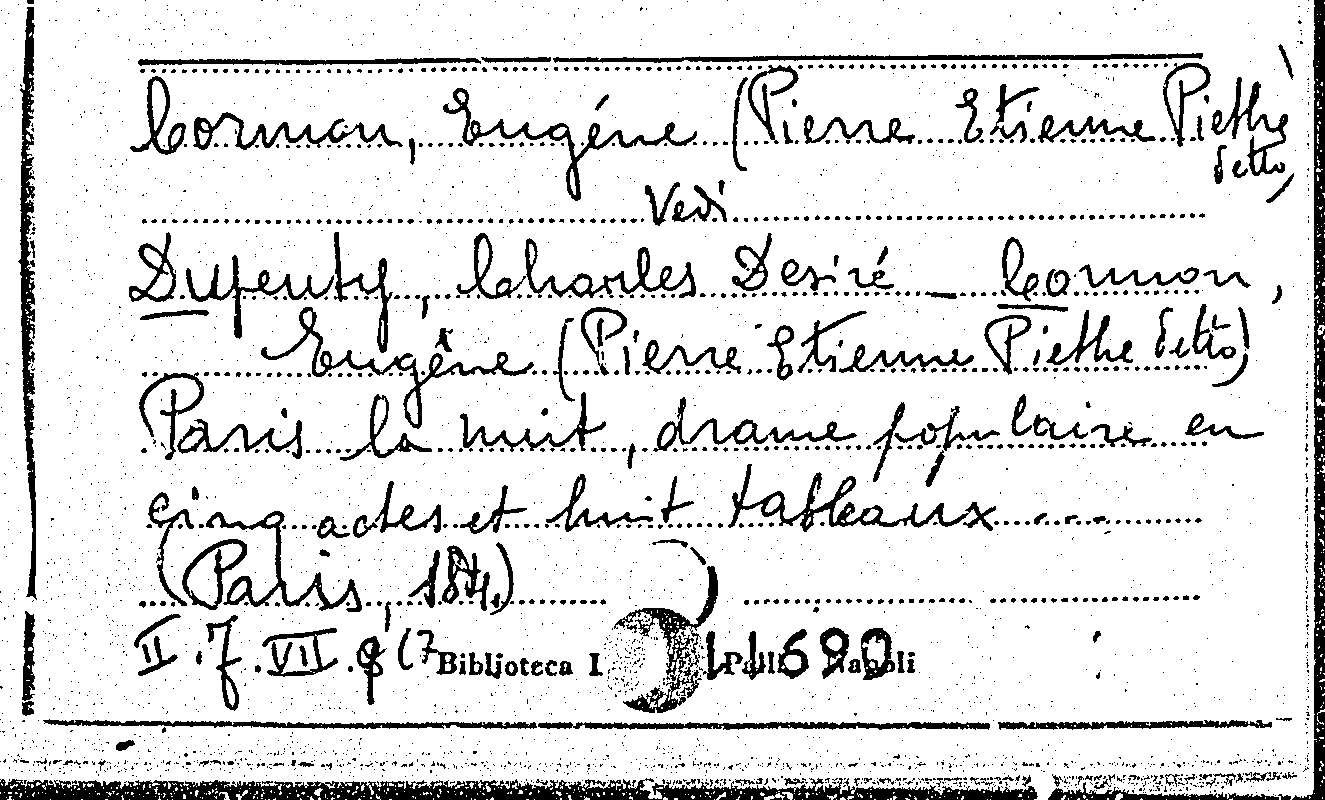 Cormon, Eugéne (Pierre Etienne Piethe
detto)
Vedi
Dupeuty, Charles Desiré _ Cormon,
Eugêne (Pierre Etienne Piethe detto)
Paris la nuit, drame populaire en
cinq actes et huit tableaux ....
(Paris,
II.7.VII.8(7
Biblioteca L. Palli Napoli